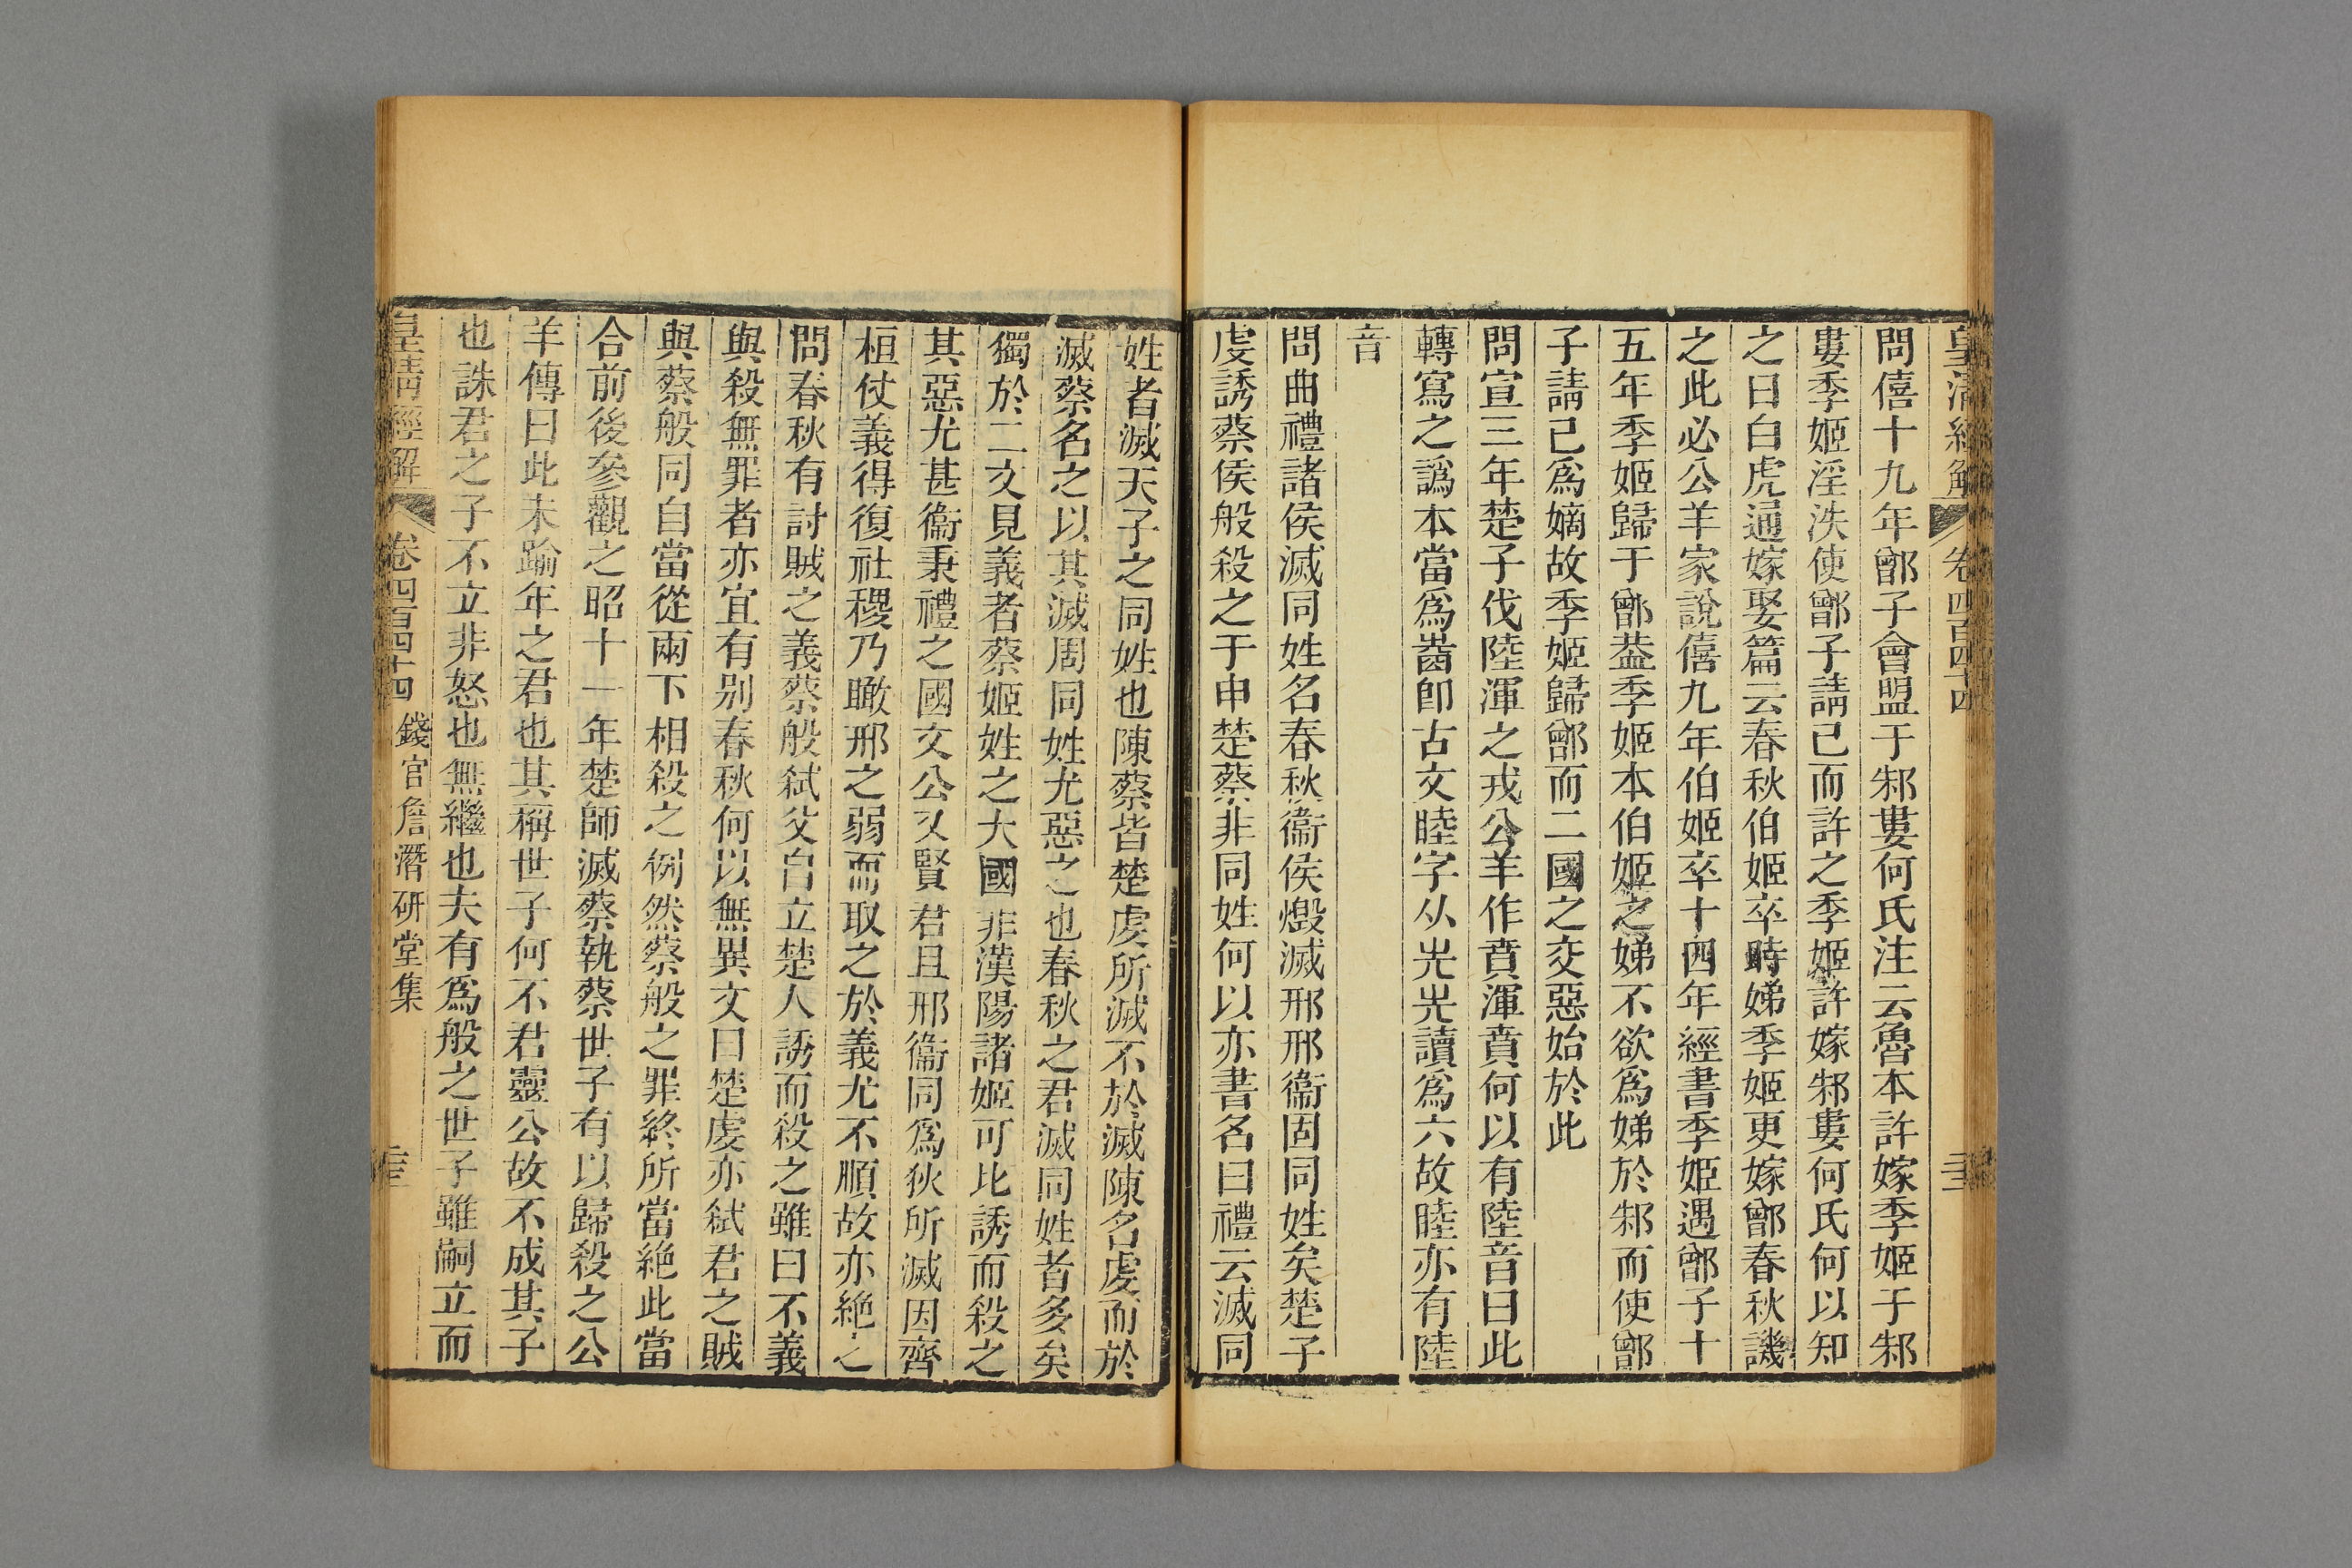 皇清經解 卷四百四十四
問僖十九年鄫子會盟于邾婁何氏注云魯本許嫁季姬于邾
婁季姬淫泆使鄫子請己而許之季姬許嫁邾婁何氏何以知
之曰白虎通嫁娶篇云春秋伯姬卒時娣季姬更嫁鄫春秋譏
之此必公羊家說僖九年伯姬卒十四年經書季姬遇鄫子十
五年季姬歸于鄫葢季姬本伯姬之娣不欲爲娣於邾而使鄫
子請己爲嫡故季姬歸鄫而二國之交惡始於此
問宣三年楚子伐陸渾之戎公羊作賁渾賁何以有陸音曰此
轉寫之譌本當爲𧶠卽古文睦字从圥圥讀爲六故睦亦有陸
音
問曲禮諸侯滅同姓名春秋衞侯燬滅邢邢衞固同姓矣楚子
虔誘蔡侯般殺之于申楚蔡非同姓何以亦書名曰禮云滅同
姓者滅天子之同姓也陳蔡皆楚虔所滅不於滅陳名虔而於
滅蔡名之以其滅周同姓尤惡之也春秋之君滅同姓者多矣
獨於二文見義者蔡姬姓之大國非漢陽諸姬可比誘而殺之
其惡尤甚衞秉禮之國文公又賢君且邢衞同爲狄所滅因齊
桓仗義得復社稷乃瞰邢之弱而取之於義尤不順故亦絶之
問春秋有討賊之義蔡般弒父自立楚人誘而殺之雖曰不義
與殺無罪者亦宜有别春秋何以無異文曰楚虔亦弒君之賊
與蔡般同自當從兩下相殺之例然蔡般之罪終所當絶此當
合前後參觀之昭十一年楚師滅蔡執蔡世子有以歸殺之公
羊傳曰此未踰年之君也其稱世子何不君靈公故不成其子
也誅君之子不立非怒也無繼也夫有爲般之世子雖嗣立而
皇清經解 卷四百四十四 錢官詹潛研堂集